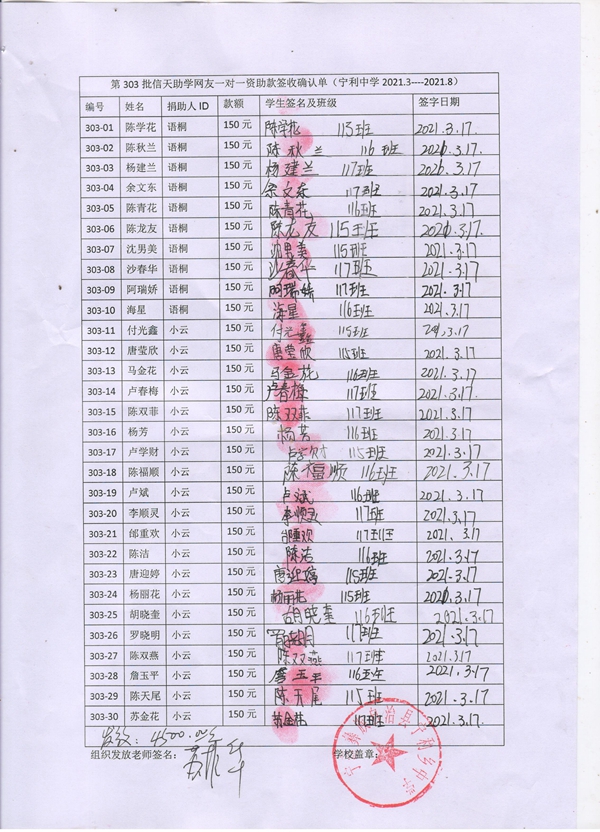 第 303 批信天助学网友一对一资助款签收确认单（宁利中学 2021.3----2021.8）
编号 姓名 捐助人 ID 款额 学生签名及班级 签字日期
303-01 陈学花 语桐 150 元 陈学花 115班 2021.3.17.
303-02 陈秋兰 语桐 150 元 陈秋兰 116班 2021.3.17.
303-03 杨建兰 语桐 150 元 杨建兰 117班 2021.3.17.
303-04 余文东 语桐 150 元 余文东 117班 2021.3.17.
303-05 陈青花 语桐 150 元 陈青花 116班 2021.3.17.
303-06 陈龙友 语桐 150 元 陈龙友 115班 2021.3.17.
303-07 沈男美 语桐 150 元 沈男美 115班 2021.3.17
303-08 沙春华 语桐 150 元 沙春华 117班 2021.3.17
303-09 阿瑞娇 语桐 150 元 阿瑞娇 117班 2021.3.17
303-10 海星 语桐 150 元 海星 116班 2021.3.17
303-11 付光鑫 小云 150 元 付光鑫 115班 2021.3.17
303-12 唐莹欣 小云 150 元 唐莹欣 115班 2021.3.17
303-13 马金花 小云 150 元 马金花 116班 2021.3.17
303-14 卢春梅 小云 150 元 卢春梅 117班 2021.3.17
303-15 陈双菲 小云 150 元 陈双菲 117班 2021.3.17
303-16 杨芳 小云 150 元 杨芳 116班 2021.3.17
303-17 卢学财 小云 150 元 卢学财 115班 2021.3.17
303-18 陈福顺 小云 150 元 陈福顺 116班 2021.3.17
303-19 卢斌 小云 150 元 卢斌 116班 2021.3.17
303-20 李顺灵 小云 150 元 李顺灵 117班 2021.3.17
303-21 邰重欢 小云 150 元 117班 2021.3.17
303-22 陈洁 小云 150 元 陈洁 116班 2021.3.17
303-23 唐迎婷 小云 150 元 唐迎婷 115班 2021.3.17
303-24 杨丽花 小云 150 元 杨丽花 115班 2021.3.17
303-25 胡晓奎 小云 150 元 胡晓奎 116班 2021.3.17
303-26 罗晓明 小云 150 元 117班 2021.3.17
303-27 陈双燕 小云 150 元 陈双燕 117班 2021.3.17
303-28 詹玉平 小云 150 元 詹玉平 116班 2021.3.17
303-29 陈天尾 小云 150 元 陈天尾 115班 2021.3.17
303-30 苏金花 小云 150 元 苏金花 117班 2021.3.17
发款：4500.00元
组织发放老师签名： 学校盖章：